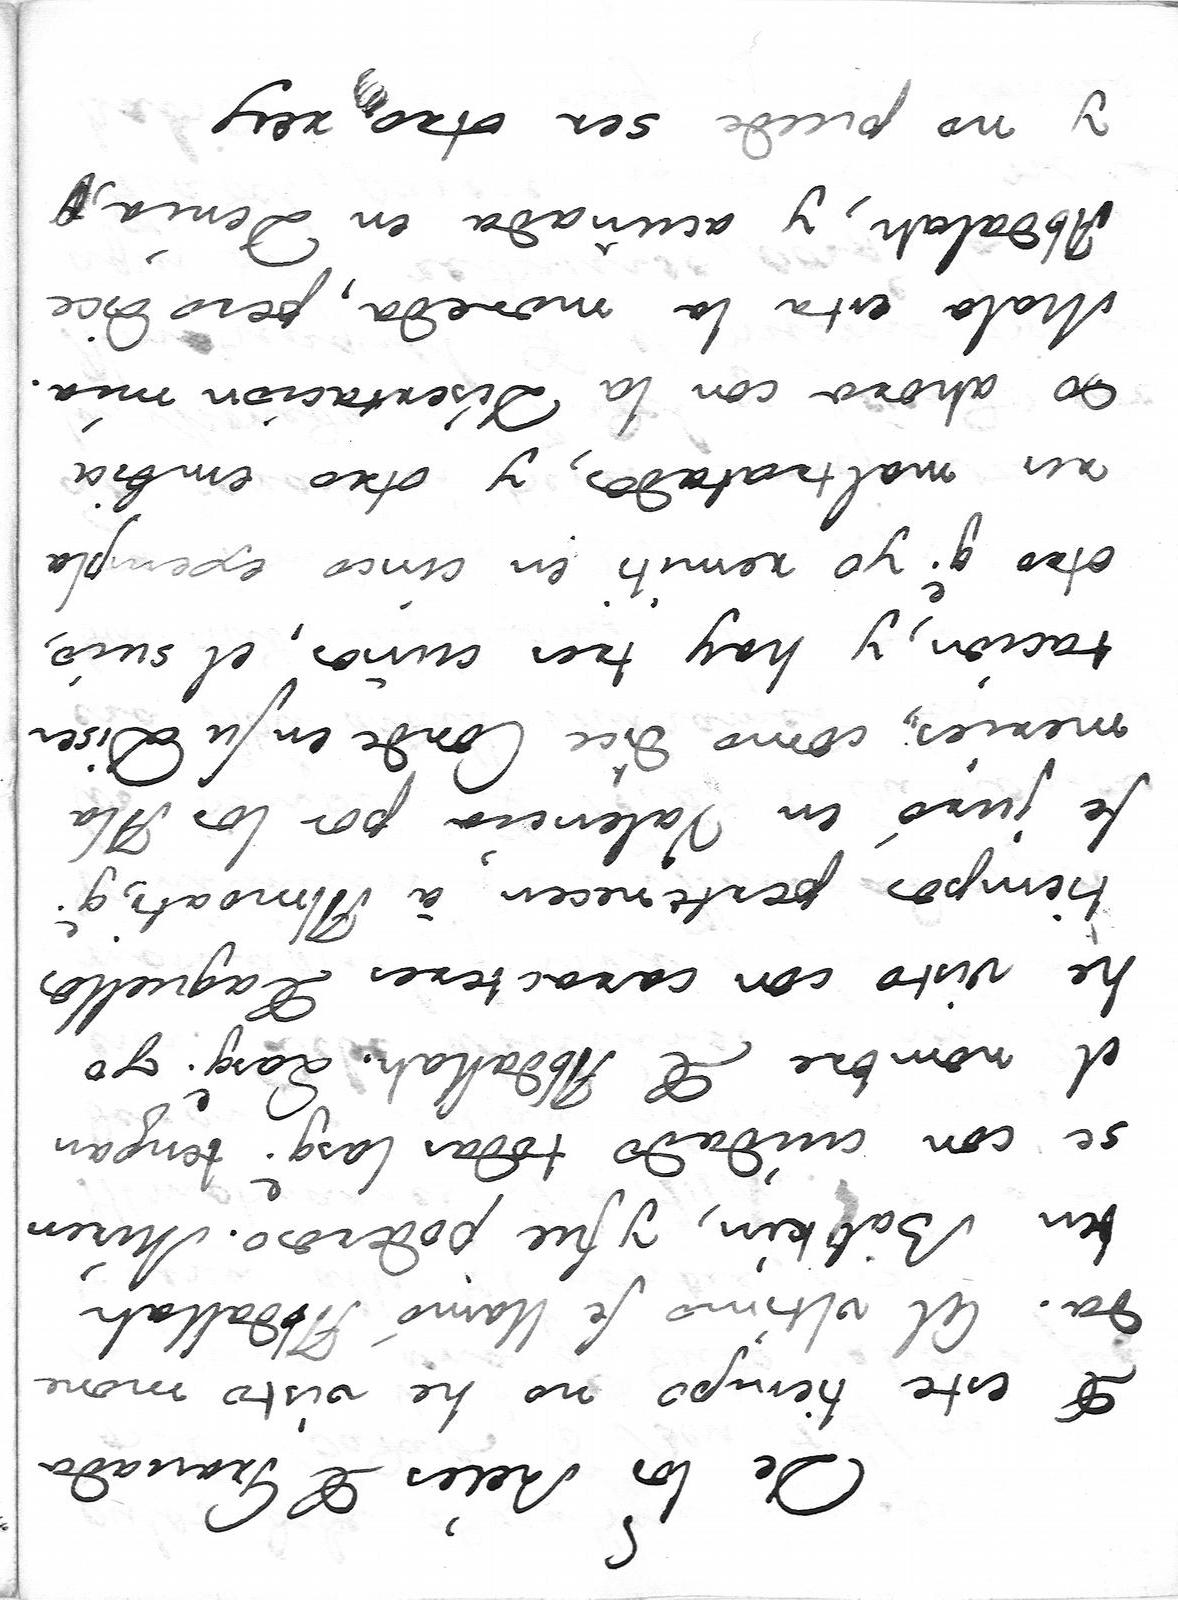 De los Reies de Granada
de este tiempo no he visto mone
da. El ultimo se llamó Abdallah
ben Balkin, y fue poderoso. Miren
se con cuidado todas las q.e tengan
el nombre de Abdallah. Las q.e yo
he visto con caracteres de aquellos
tiempos pertenecen à Almoats, q.e
se juró en Valencia por los Ala
meries, como dice Conde en su Diser
tación, y hay tres cuños, el suio,
otro q.e yo remiti en cinco exempla
res maltratados, y otro embia
do ahora con la Disertacion mia.
Mala esta la moneda, pero dice
Abdalah, y acuñada en Denia,
y no puede ser otro rey